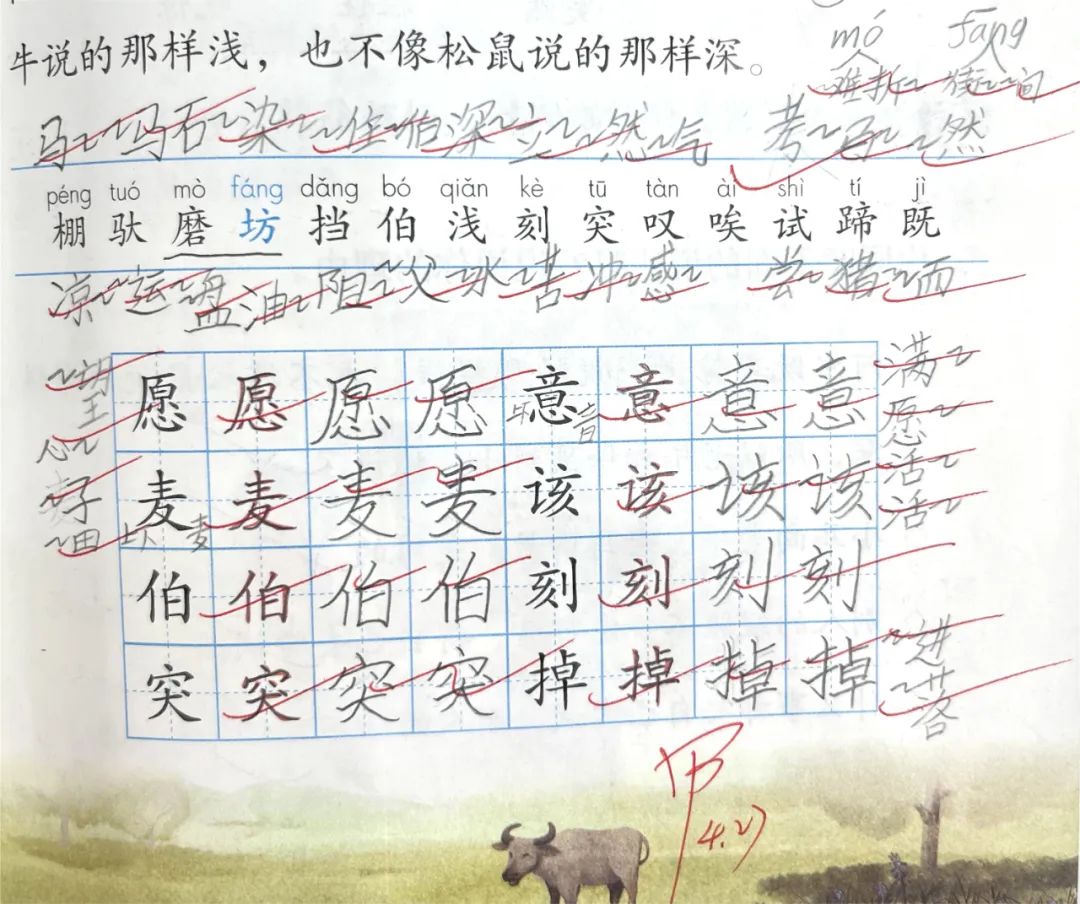 牛说的那样浅，也不像松鼠说的那样深。
mó fāng
难折 街间
马 马石染 住伯深立然气 考 马 然
péng tuó mò fáng dǎng bó qiǎn kè tū tàn ài shì tí jì
棚 驮 磨 坊 挡 伯 浅 刻 突 叹 唉 试 蹄 既
凉 运 盘油 阻 父 水 苦 冲 感 尝 猪 而
望 愿 愿 愿 愿 意 意 意 意 满
心 愿
子 麦 麦 麦 麦 该 该 该 该 活
田 坎 麦 活
伯 伯 伯 伯 刻 刻 刻 刻
突 突 突 突 掉 掉 掉 掉 进
落
甲
4.27